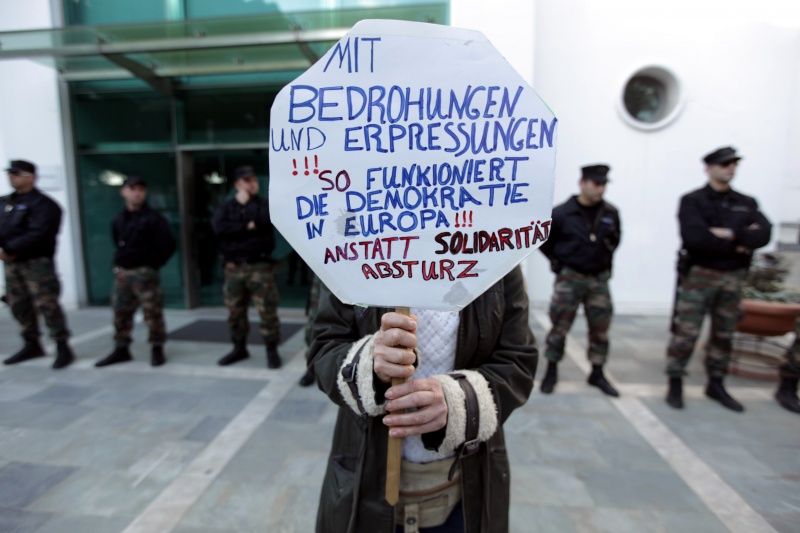 MIT
BEDROHUNGEN
UND ERPRESSUNGEN
!!! SO FUNKIONIERT
DIE DEMOKRATIE
IN EUROPA!!!
ANSTATT SOLIDARITÄT
ABSTURZ